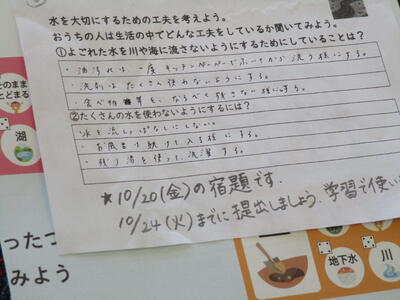 水を大切にするための工夫を考えよう。
おうちの人は生活の中でどんな工夫をしているか聞いてみよう。
①よごれた水を川や海に流さないようにするためにしていることは?
・油汚れは一度キッチンペーパーでふいてから洗う様にする。
・洗剤はたくさん使わないようにする。
・食べ物等を、なるべく残さない様にする。
②たくさんの水を使わないようにするには?
水を流しっぱなしにしない。
・お風呂は続けて入る様にする。
・残り湯を使って、洗濯する。
★10/20(金)の宿題です.
10/24(火)までに提出しましょう.学習で使い
そのまま
とどまる
湖
ったつ
みよう
地下水
川